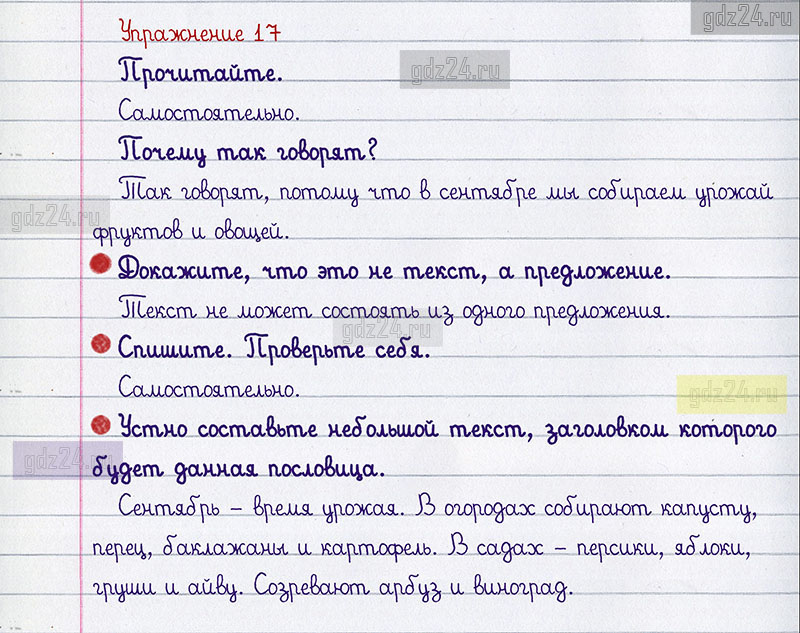 gdz24.ru
Упражнение 17
Прочитайте.
gdz24.ru
Самостоятельно.
Почему так говорят?
Так говорят, потому что в сентябре мы собираем урожай
gdz24.ru
фруктов и овощей.
Докажите, что это не текст, а предложение.
Текст не может состоять из одного предложения.
gdz24.ru
Спишите. Проверьте себя.
Самостоятельно.
gdz24.ru
Устно составьте небольшой текст, заголовком которого
gdz24.ru
будет данная пословица.
Сентябрь – время урожая. В огородах собирают капусту,
перец, баклажаны и картофель. В садах – персики, яблоки,
груши и айву. Созревают арбуз и виноград.